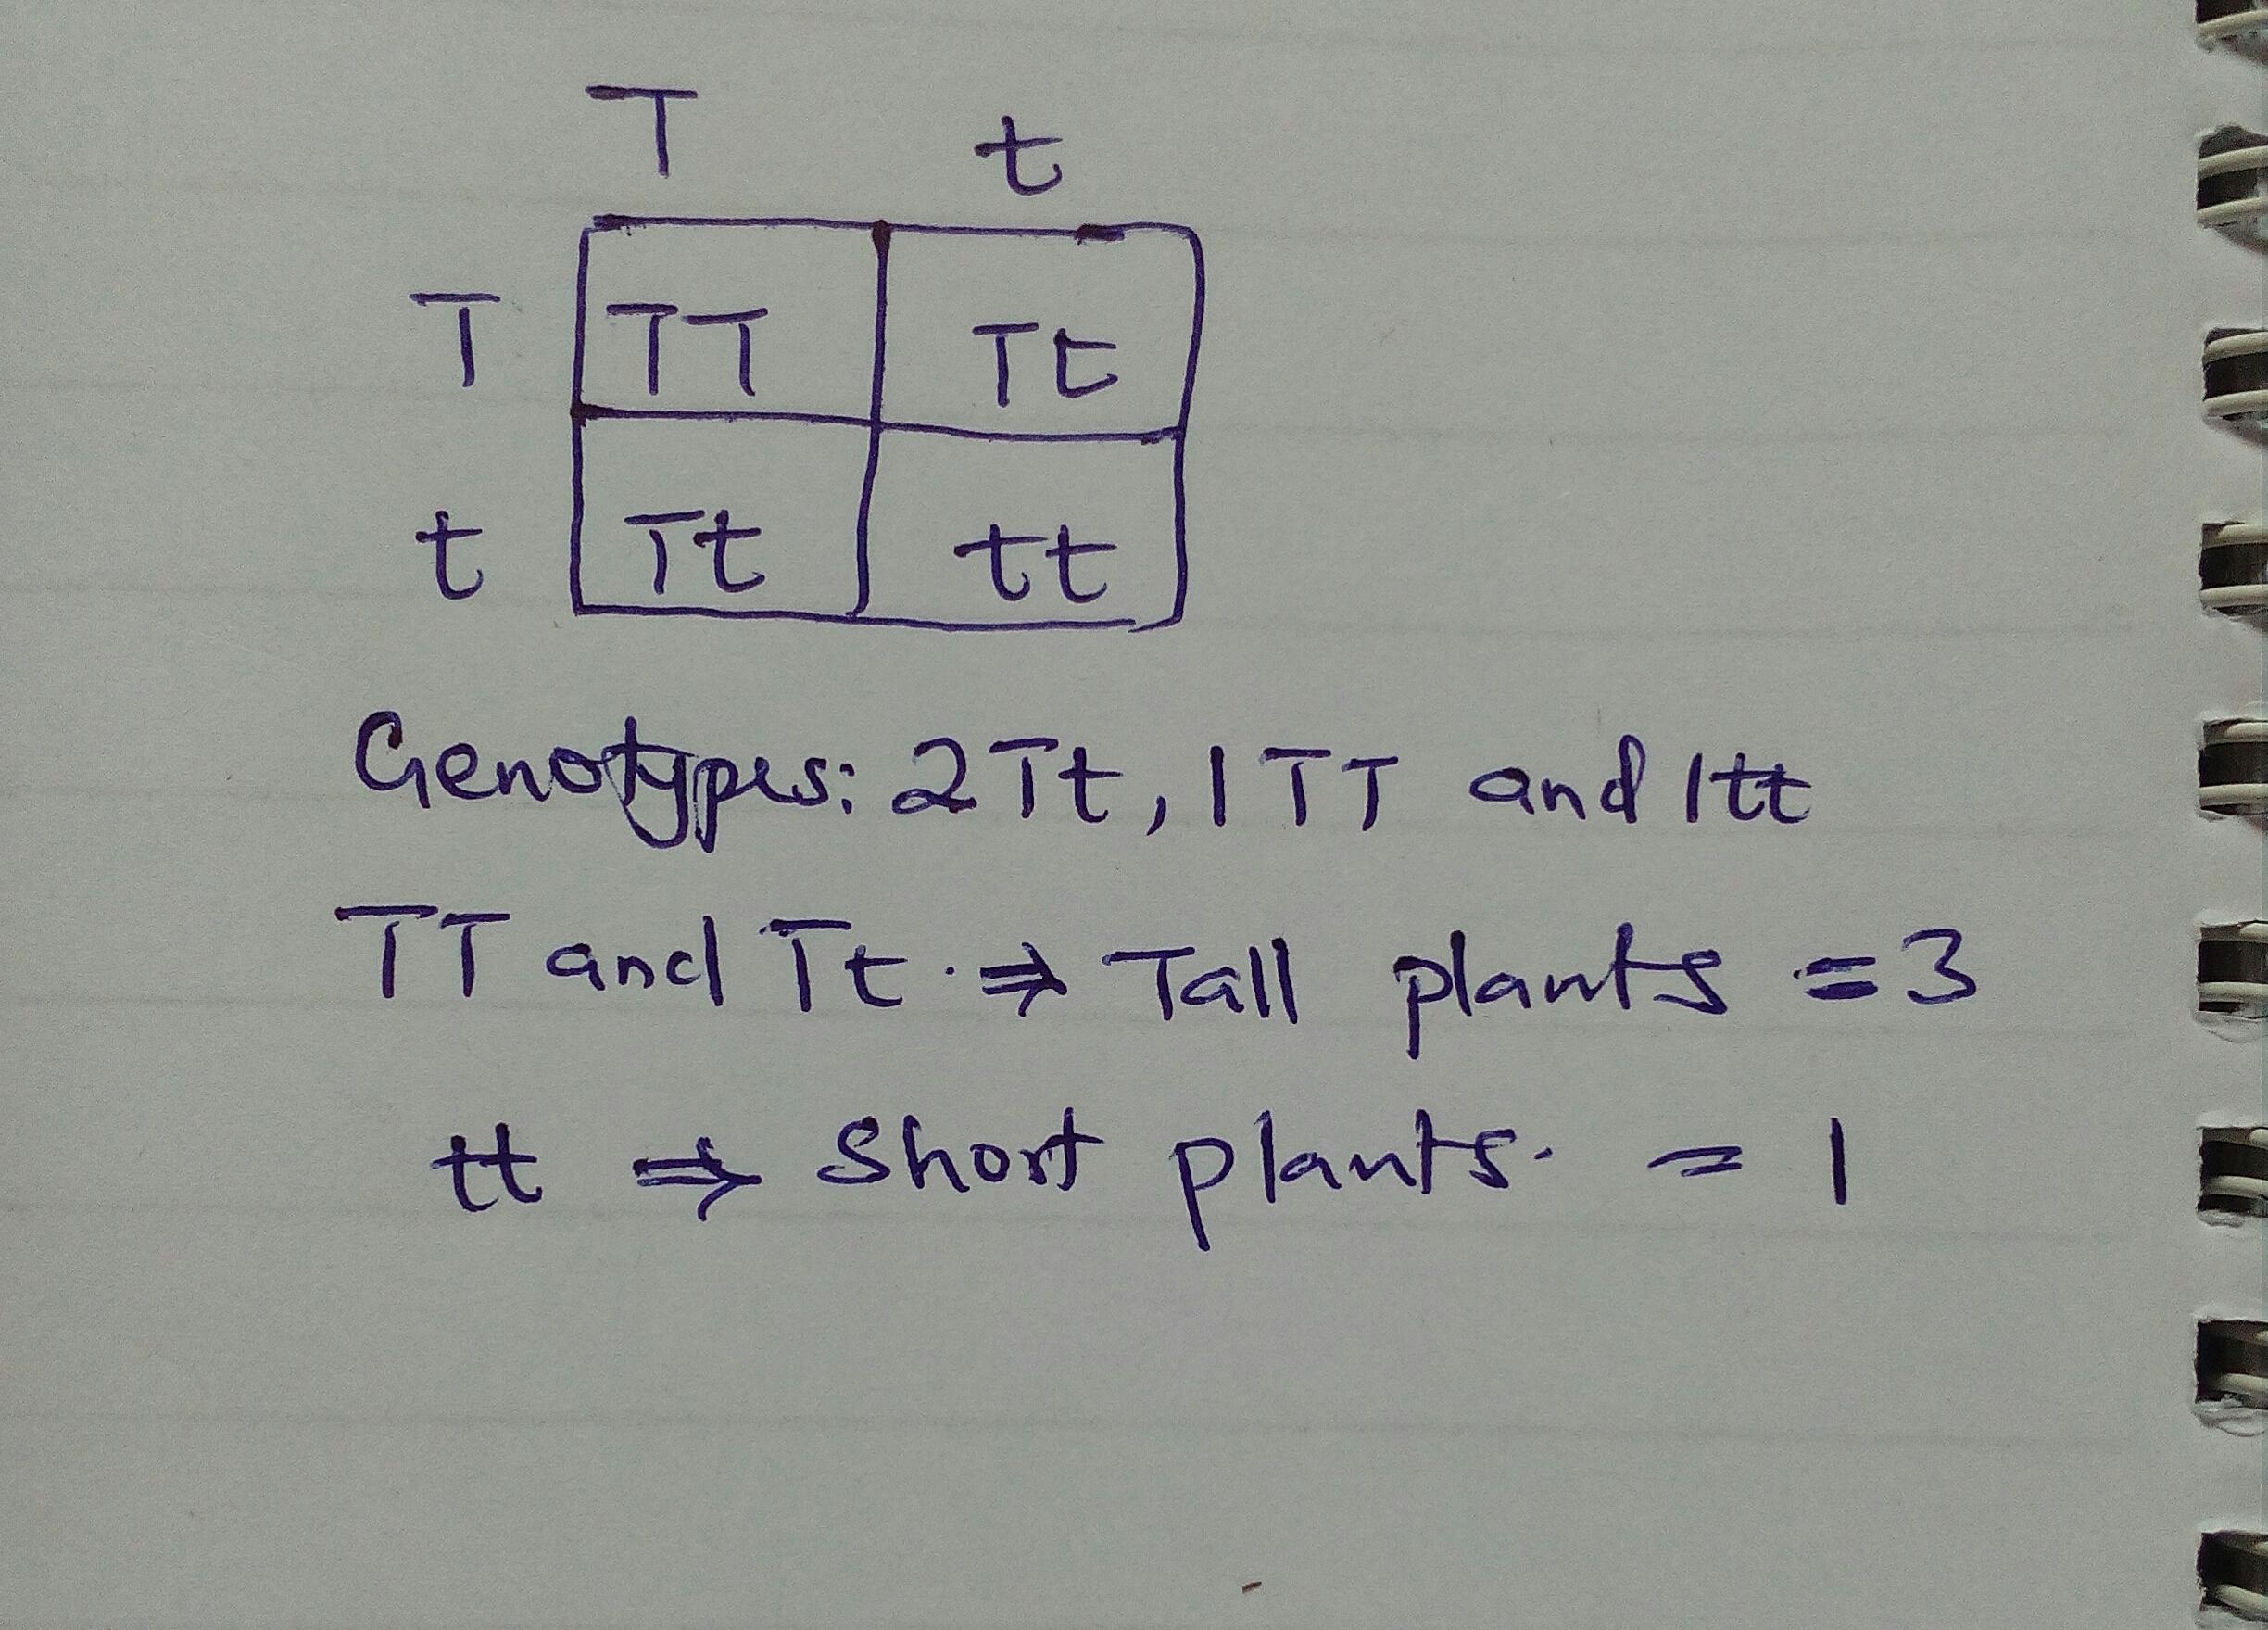 T t
T TT Tt
t Tt tt
Genotypes: 2Tt, 1TT and 1tt
TT and Tt ⇒ Tall plants = 3
tt ⇒ Short plants. = 1